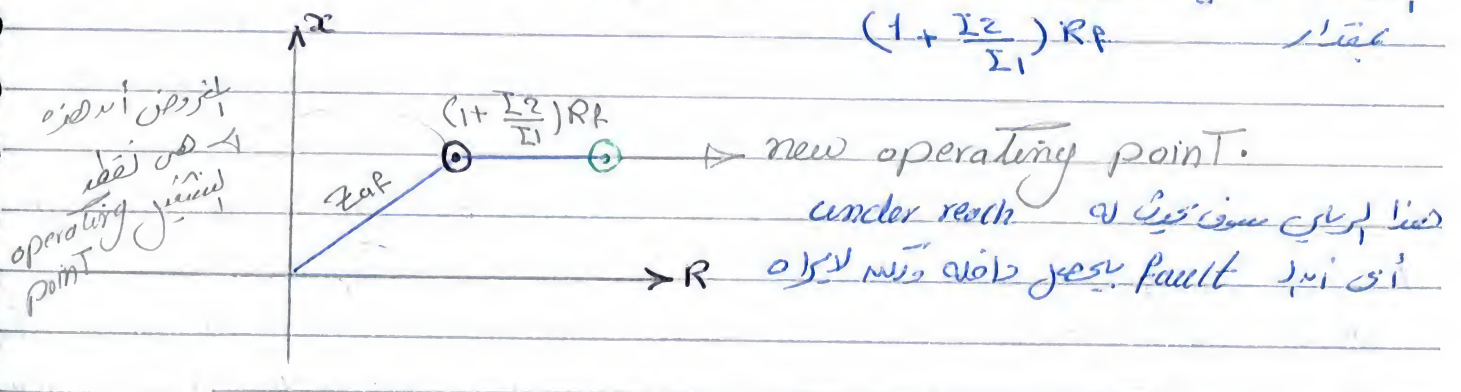 بمقدار (1 + I2/I1) Rf
x
المفروض أن هذه
هى نقطة
التشغيل
operating
point
(1+ I2/I1) Rf
Zaf
new operating point.
هذا الريلاي سوف يحدث له under reach
R
أى أن الـ fault بيحصل داخله ولكنه لا يراه